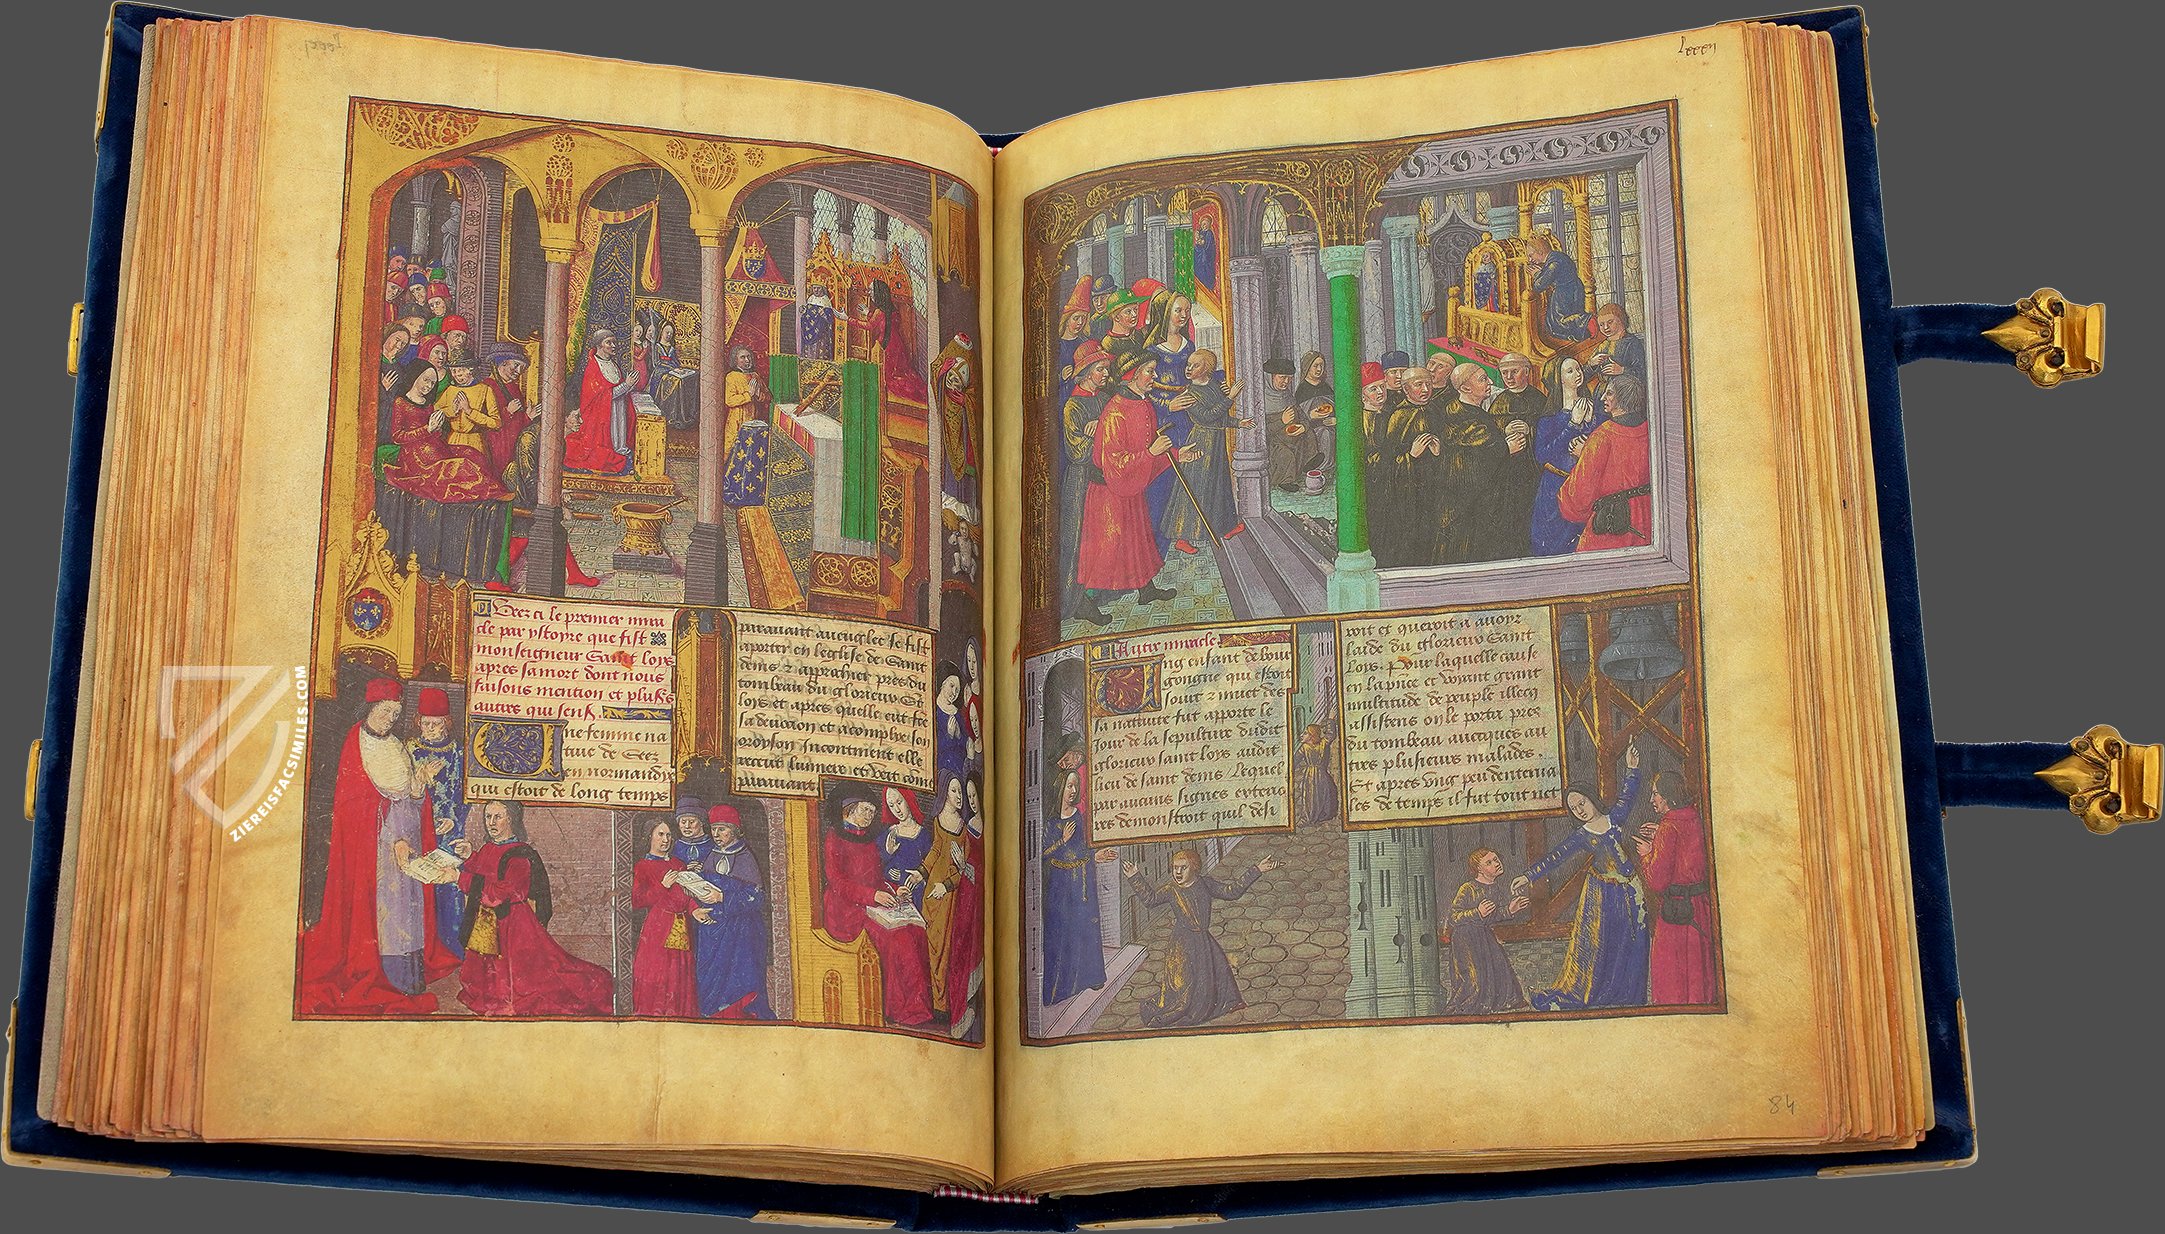 lxxxii
Veez ci le premier mira
cle par ystoyre que fist
monseigneur Saint loys
apres sa mort dont nous
faisons mention et plusrs
autres qui sens.
Une femme na
tive de Seez
en normandie
qui estoit de long temps
paravant aveuglee se fist
aporter en leglise de Saint
denis & approchier pres du
tombeau du glorieux St
loys et apres quelle eut fce
sa devocion et acomply son
oroyson Incontinent elle
receut lumiere et veit come
paravant
Autre miracle
Ung enfant de bour
gongne qui estoit
sourt & muet des
sa nativite fut apporte le
Jour de la sepulture dudit
glorieux saint loys audit
lieu de saint denis Lequel
par aucuns signes exterio
res demonstroit quil desi
roit et queroit a avoyr
laide du glorieux Saint
loys. Pour laquelle cause
en la pitie et voyant grant
multitude de peuple illecq
assistens on le porta pres
du tombeau avecques au
tres plusieurs malades.
Et apres ung peu dentervа
les de temps il fut tout net
AVE MA
84
ZIEREISFACSIMILES.COM